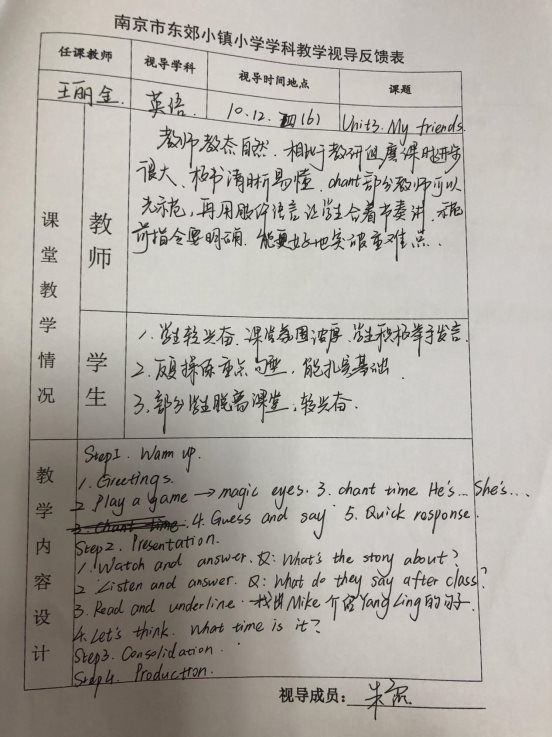 南京市东郊小镇小学学科教学视导反馈表
任课教师 视导学科 视导时间地点 课题
王丽金 英语 10.12. 四(6) Unit3. My friends
课堂教学情况
教师
教师教态自然、相比于教研组磨课时进步
很大、板书清晰易懂、chant部分教师可以
先示范，再用肢体语言让学生合着节奏讲、示范
前指令要明确、能更好地突破重难点.
学生
1. 学生较兴奋、课堂氛围浓厚、学生积极举手发言.
2. 反复操练重点句型，能扎实基础.
3. 部分学生脱离课堂，较兴奋.
教学内容设计
Step1. Warm up.
1. Greetings.
2. Play a game → magic eyes. 3. chant time He's... She's...
4. Guess and say 5. Quick response.
Step2. Presentation.
1. Watch and answer. Q: What's the story about?
2 Listen and answer. Q: What do they say after class?
3. Read and underline. 找出Mike介绍Yang Ling的句子.
4. Let's think. What time is it?
Step3. Consolidation.
Step4. Production.
视导成员：朱